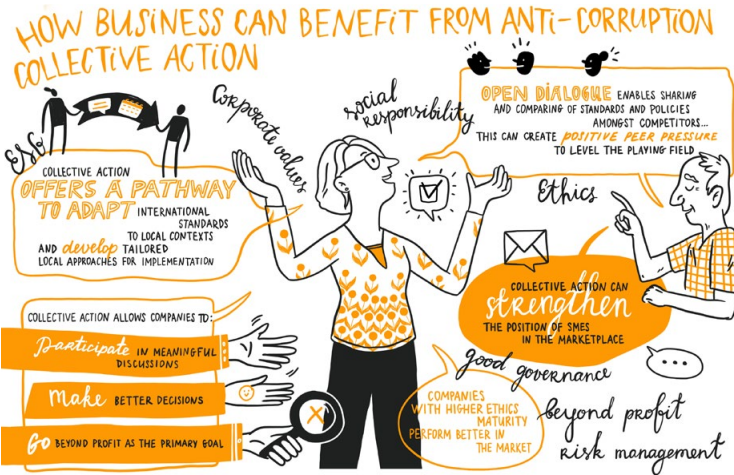 HOW BUSINESS CAN BENEFIT FROM ANTI-CORRUPTION
COLLECTIVE ACTION
ESG
COLLECTIVE ACTION
OFFERS A PATHWAY
TO ADAPT INTERNATIONAL
STANDARDS
TO LOCAL CONTEXTS
AND develop TAILORED
LOCAL APPROACHES FOR IMPLEMENTATION
Corporate values
social
responsibility
OPEN DIALOGUE ENABLES SHARING
AND COMPARING OF STANDARDS AND POLICIES
AMONGST COMPETITORS...
THIS CAN CREATE POSITIVE PEER PRESSURE
TO LEVEL THE PLAYING FIELD
Ethics
COLLECTIVE ACTION CAN
strengthen
THE POSITION OF SMES
IN THE MARKETPLACE
COLLECTIVE ACTION ALLOWS COMPANIES TO:
Participate IN MEANINGFUL
DISCUSSIONS
Make BETTER DECISIONS
GO BEYOND PROFIT AS THE PRIMARY GOAL
COMPANIES
WITH HIGHER ETHICS
MATURITY
PERFORM BETTER IN
THE MARKET
good governance
beyond profit
risk management